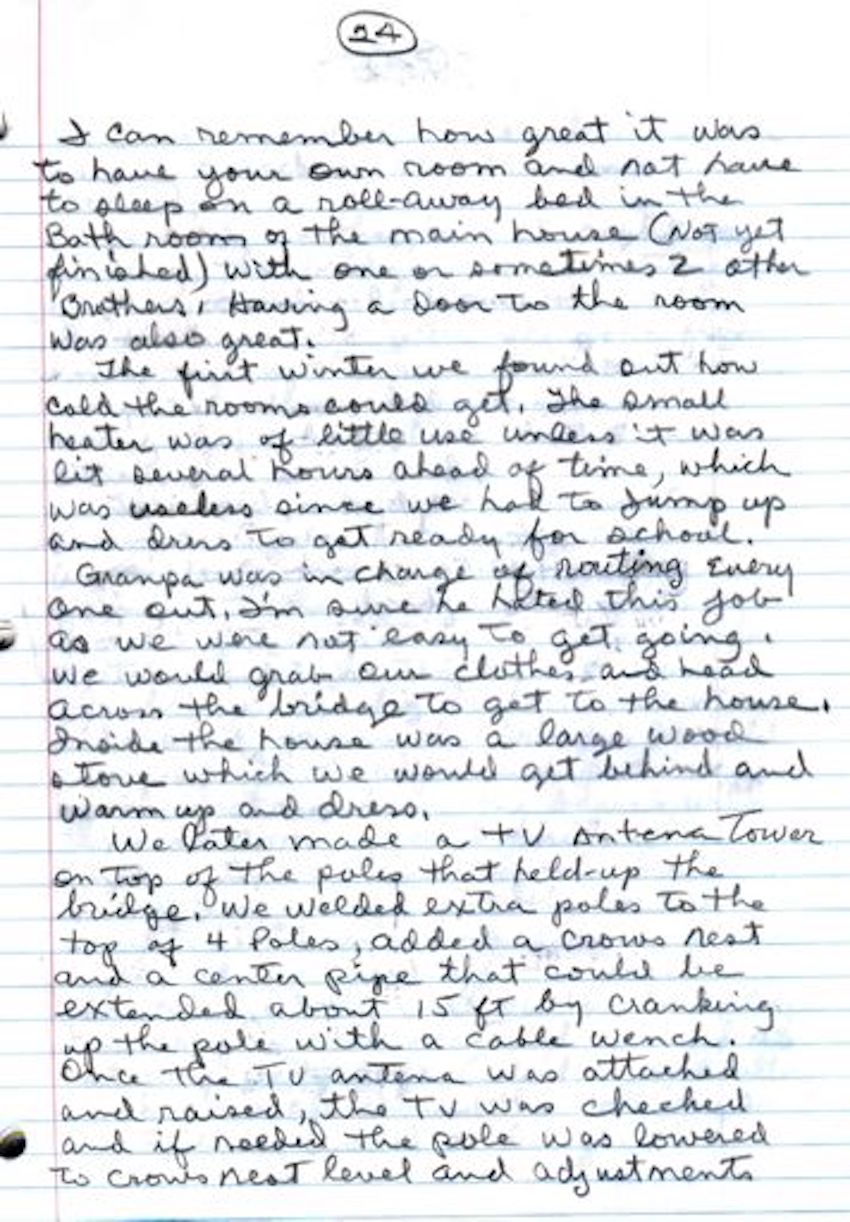 24
I can remember how great it was
to have your own room and not have
to sleep on a roll-away bed in the
Bath room of the main house (Not yet
finished) with one or sometimes 2 other
Brothers. Having a Door to the room
was also great.
The first winter we found out how
cold the rooms could get. The small
heater was of little use unless it was
lit several hours ahead of time, which
was useless since we had to Jump up
and dress to get ready for school.
Granpa was in charge of routing Every
one out. I'm sure he hated this job
as we were not easy to get going.
We would grab our clothes and head
across the bridge to get to the house.
Inside the house was a large wood
stove which we would get behind and
warm up and dress.
We later made a TV Antena Tower
on top of the poles that held-up the
bridge. We welded extra poles to the
top of 4 Poles, added a crows nest
and a center pipe that could be
extended about 15 ft by cranking
up the pole with a cable wench.
Once the TV antena was attached
and raised, the TV was checked
and if needed the pole was lowered
to crows nest level and adjustments